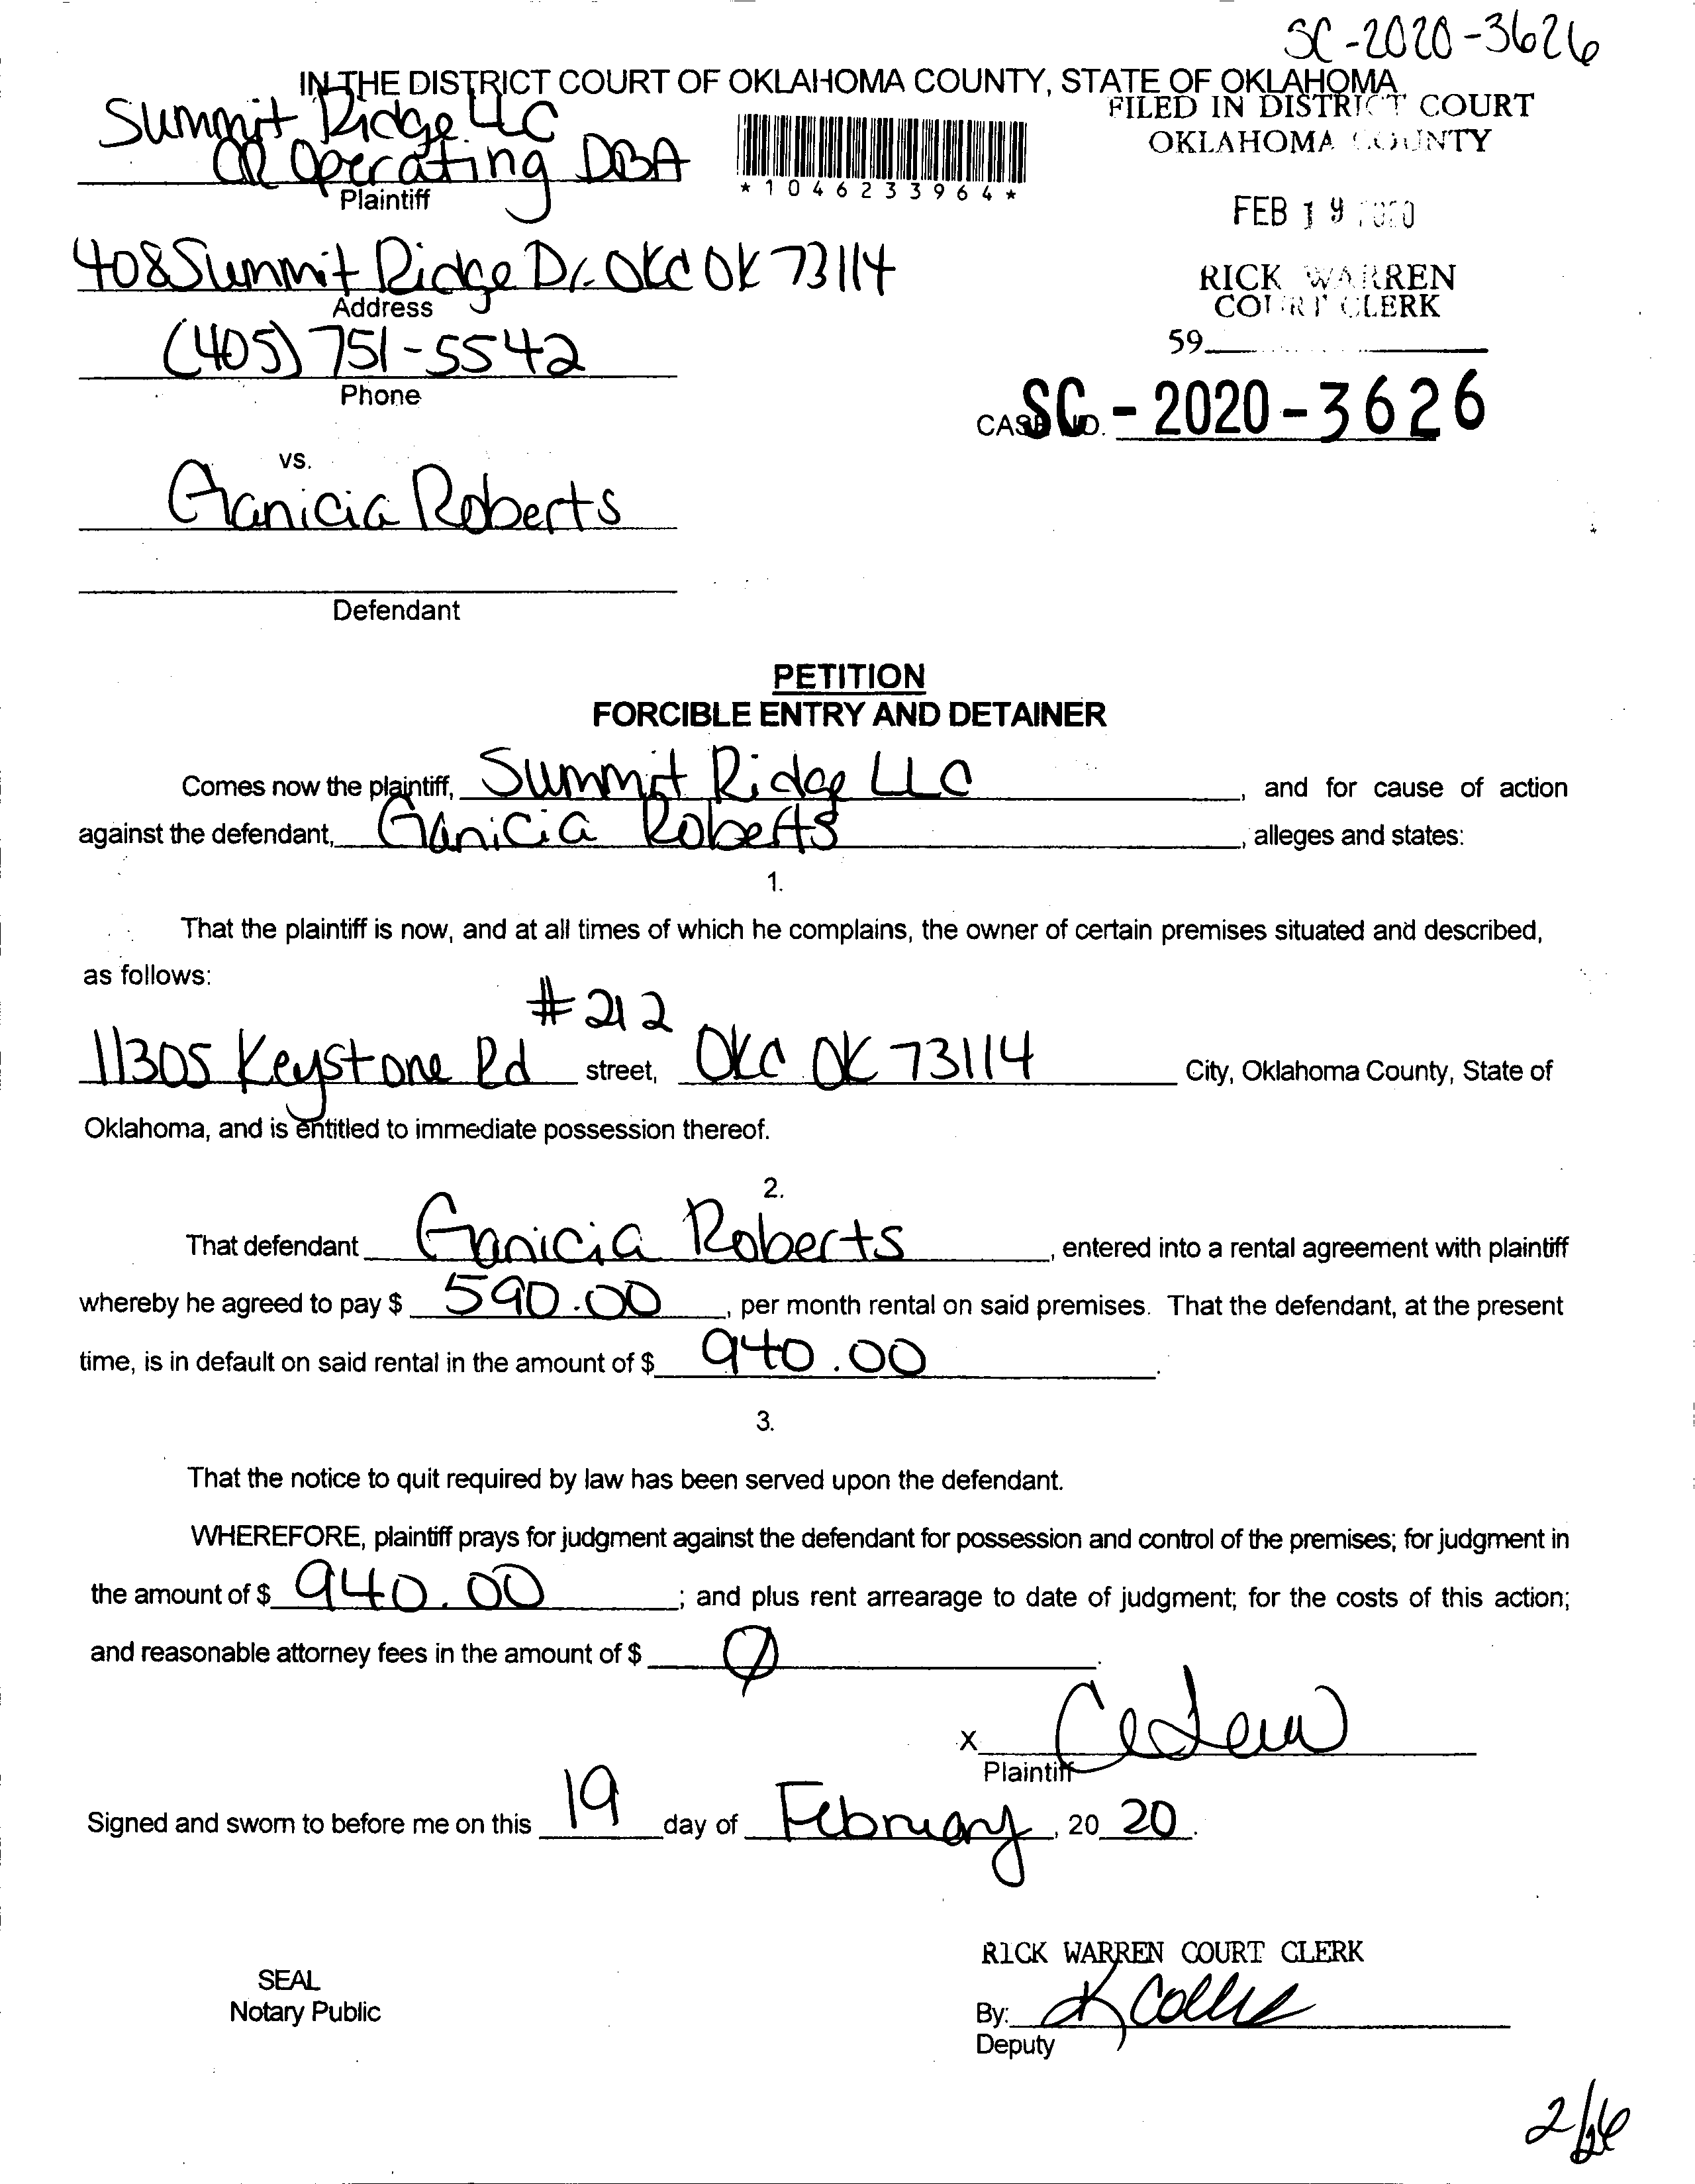 SC-2020-3626
IN THE DISTRICT COURT OF OKLAHOMA COUNTY, STATE OF OKLAHOMA
Summit Ridge LLC
OR Operating DBA
Plaintiff
*1046233964*
FILED IN DISTRICT COURT
OKLAHOMA COUNTY
FEB 19 2020
RICK WARREN
COURT CLERK
59
408 Summit Ridge Dr. OKC OK 73114
Address
(405) 751-5542
Phone
CASE NO. SC-2020-3626
vs.
Ganicia Roberts
Defendant
PETITION
FORCIBLE ENTRY AND DETAINER
Comes now the plaintiff, Summit Ridge LLC, and for cause of action
against the defendant, Ganicia Roberts, alleges and states:
1.
That the plaintiff is now, and at all times of which he complains, the owner of certain premises situated and described,
as follows:
#212
11305 Keystone Rd street, OKC OK 73114 City, Oklahoma County, State of
Oklahoma, and is entitled to immediate possession thereof.
2.
That defendant Ganicia Roberts, entered into a rental agreement with plaintiff
whereby he agreed to pay $ 590.00, per month rental on said premises. That the defendant, at the present
time, is in default on said rental in the amount of $ 940.00.
3.
That the notice to quit required by law has been served upon the defendant.
WHEREFORE, plaintiff prays for judgment against the defendant for possession and control of the premises; for judgment in
the amount of $ 940.00; and plus rent arrearage to date of judgment; for the costs of this action;
and reasonable attorney fees in the amount of $ 0.
X
Plaintiff
Signed and sworn to before me on this 19 day of February, 20 20.
RICK WARREN COURT CLERK
SEAL
Notary Public
By: K Collis
Deputy
2/26